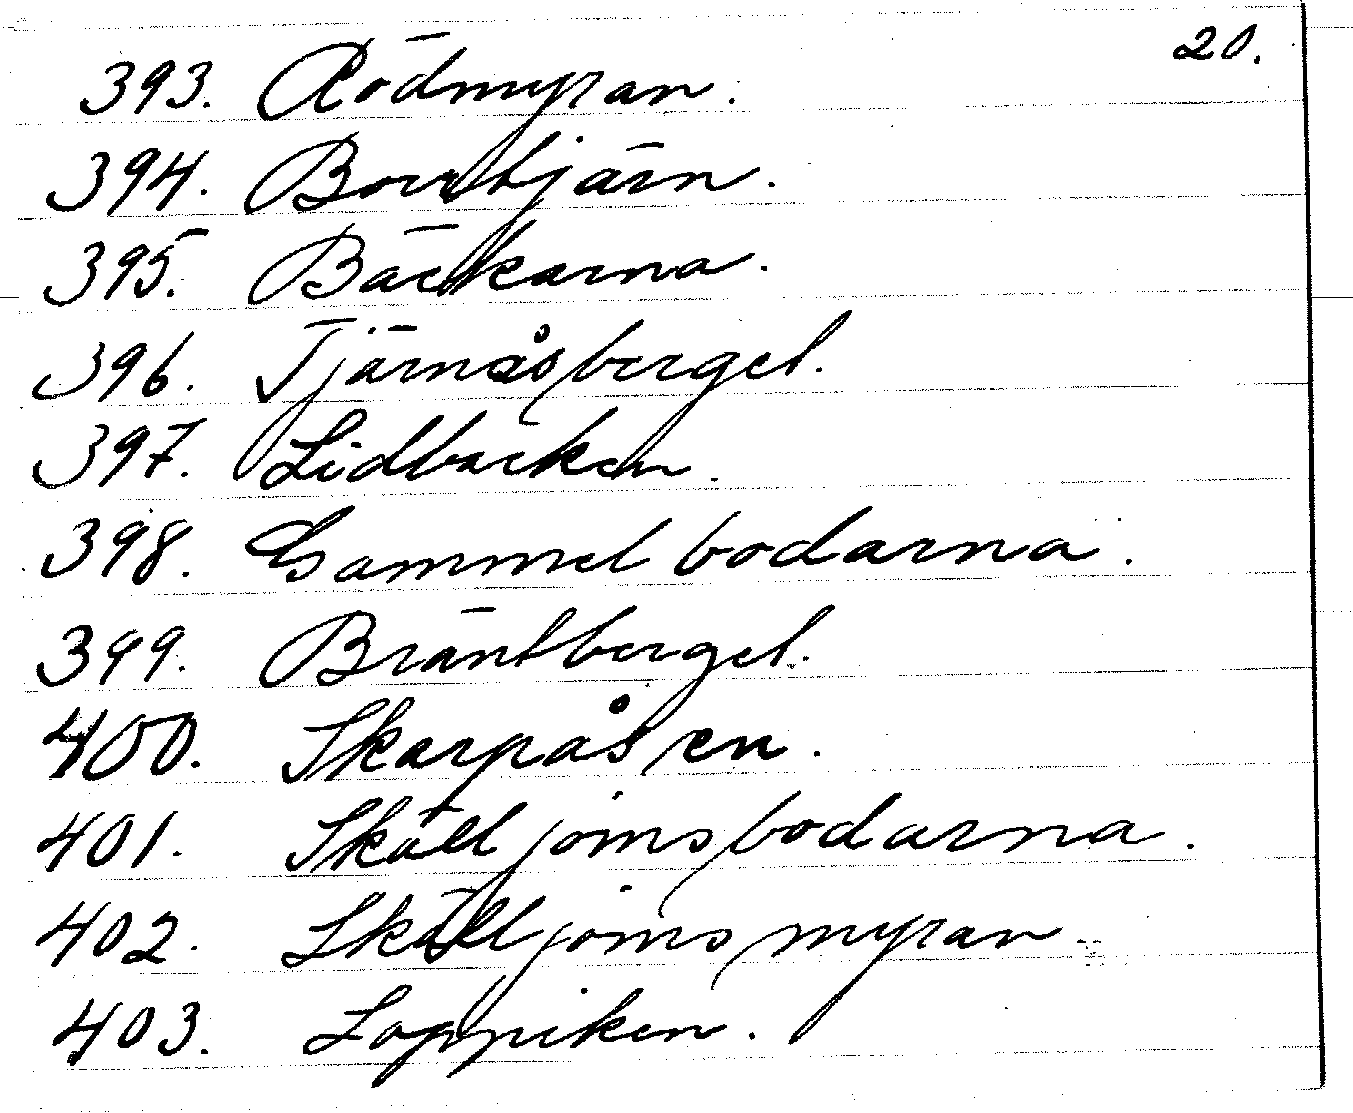 20.
393. Rödmyran.
394. Borrtjärn.
395. Bäckarna.
396. Tjärnåsberget.
397. Lidbacken.
398. Gammelbodarna.
399. Bräntberget.
400. Skarpåsen.
401. Skålljomsbodarna.
402. Skålljomsmyran
403. Loppiken.